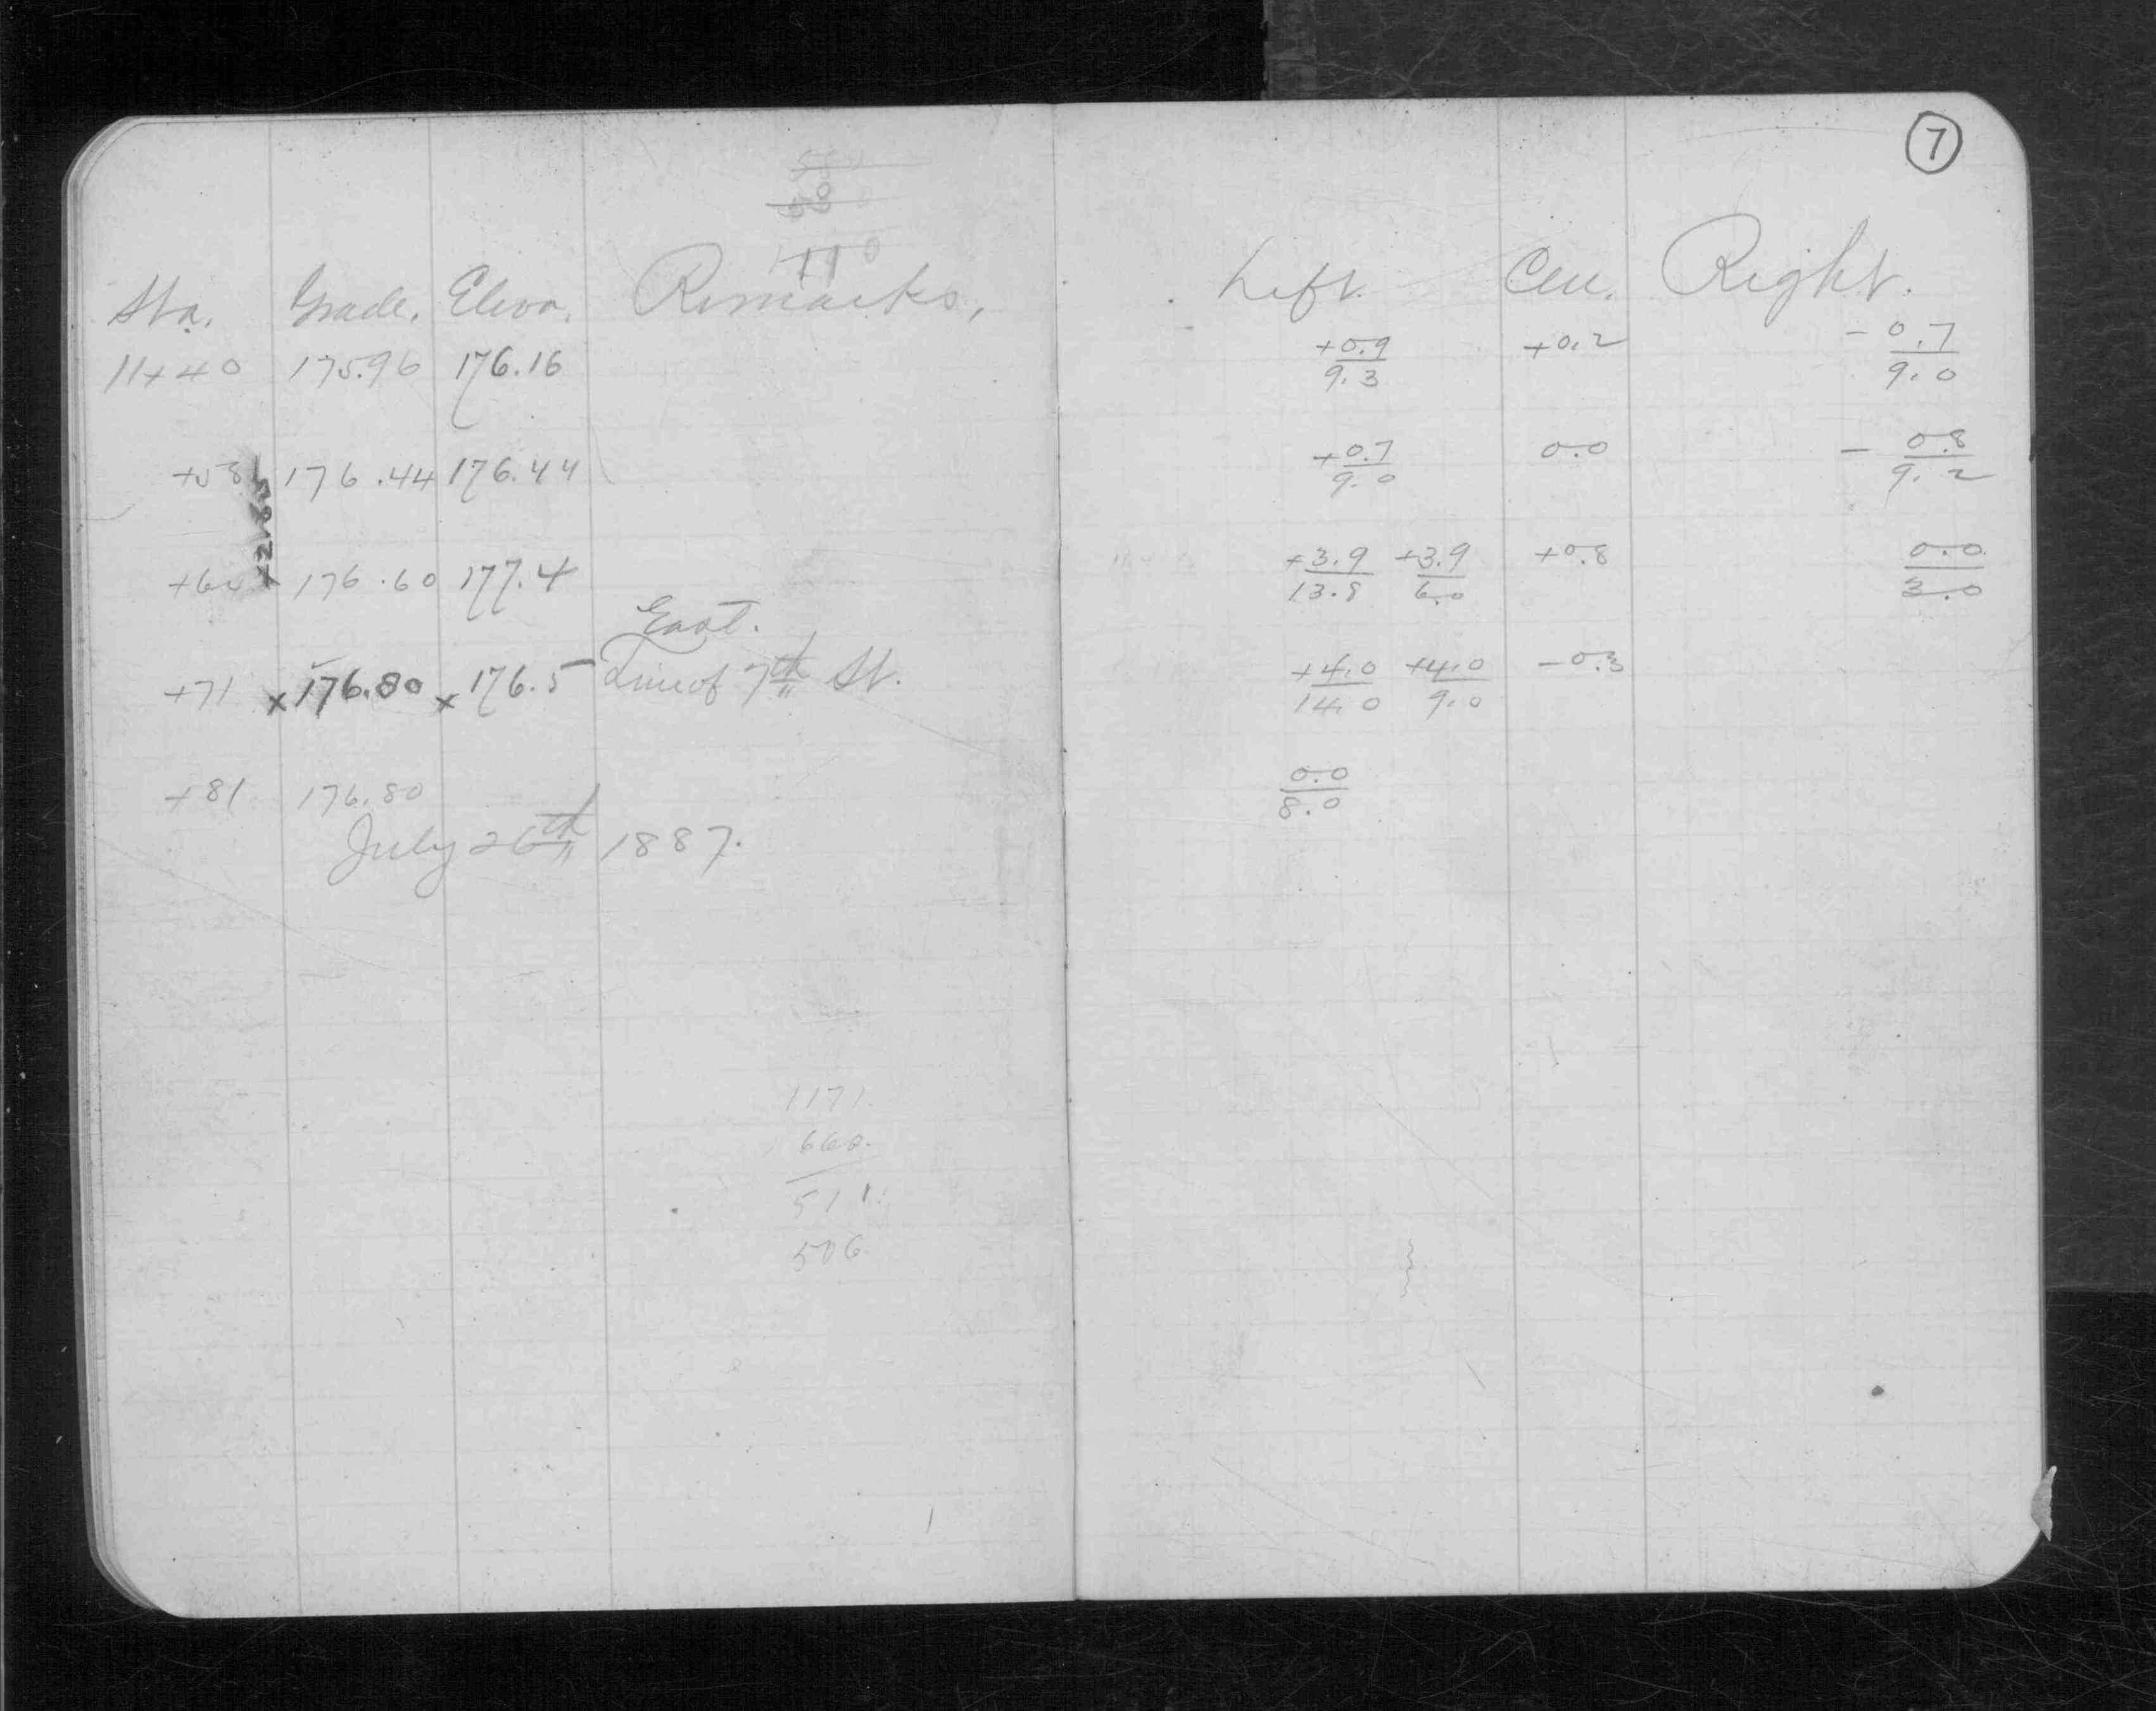 7
110
Sta. Grade. Eleva. Remarks, Left. Cen. Right.
11+40 175.96 176.16 +0.9/9.3 +0.2 -0.7/9.0
+58 176.44 176.44 +0.7/9.0 0.0 -0.8/9.2
176.60 177.4 +3.9/13.8 +3.9/6.0 +0.8 0.0/3.0
East.
+71 x 176.80 x 176.5 Line of 7th St. +4.0/14.0 +4.0/9.0 -0.3
+81 176.80 0.0/8.0
July 26th 1887.
1171
660.
511.
506